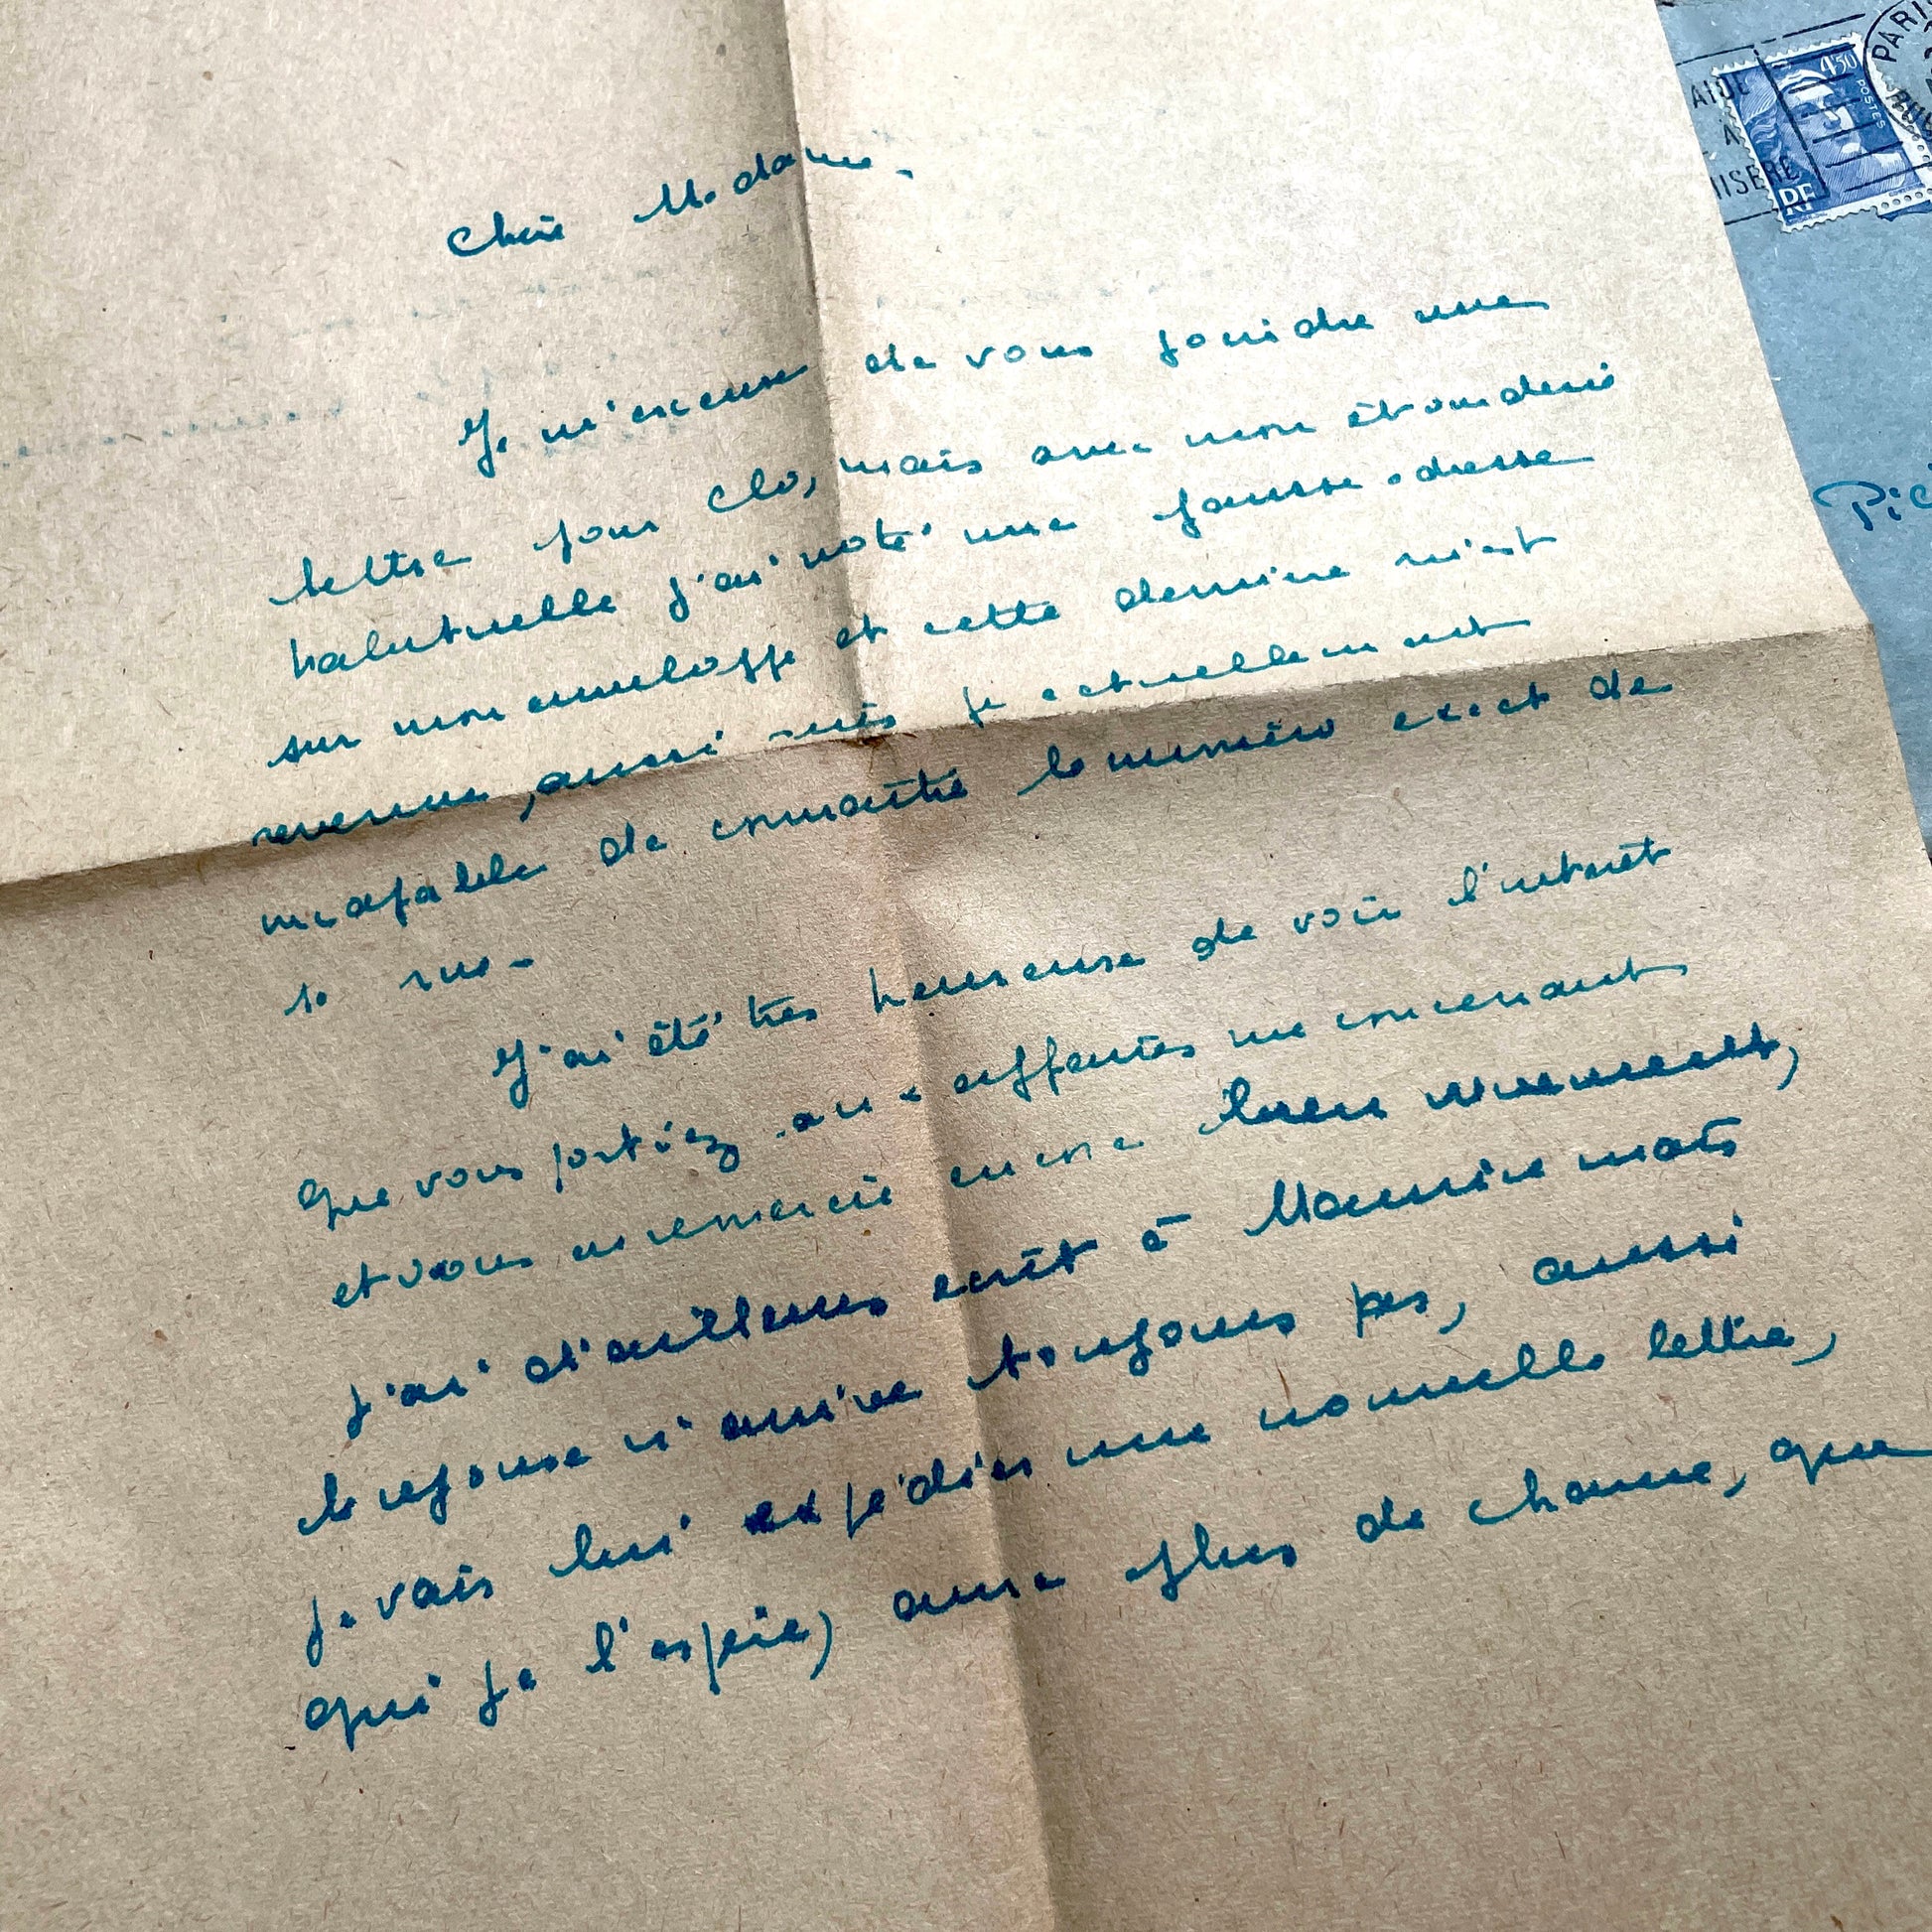 Chère Madame.
Je m'excuse de vous joindre une
lettre pour Clo, mais avec mon étourderie
habituelle j'ai noté une fausse adresse
sur mon enveloppe et cette dernière m'est
revenue, aussi suis je actuellement
incapable de connaître le numéro exact de
sa rue.
J'ai été très heureuse de voir l'intérêt
que vous portiez aux me concernant
et vous en remercie encore bien vivement,
j'ai d'ailleurs écrit à Maurice mais
la réponse n'arrive toujours pas, aussi
je vais lui expédier une nouvelle lettre,
qui je l'espère, aura plus de chance, que
4f50
POSTES
RF
PARIS
AIDE
A
MISERE